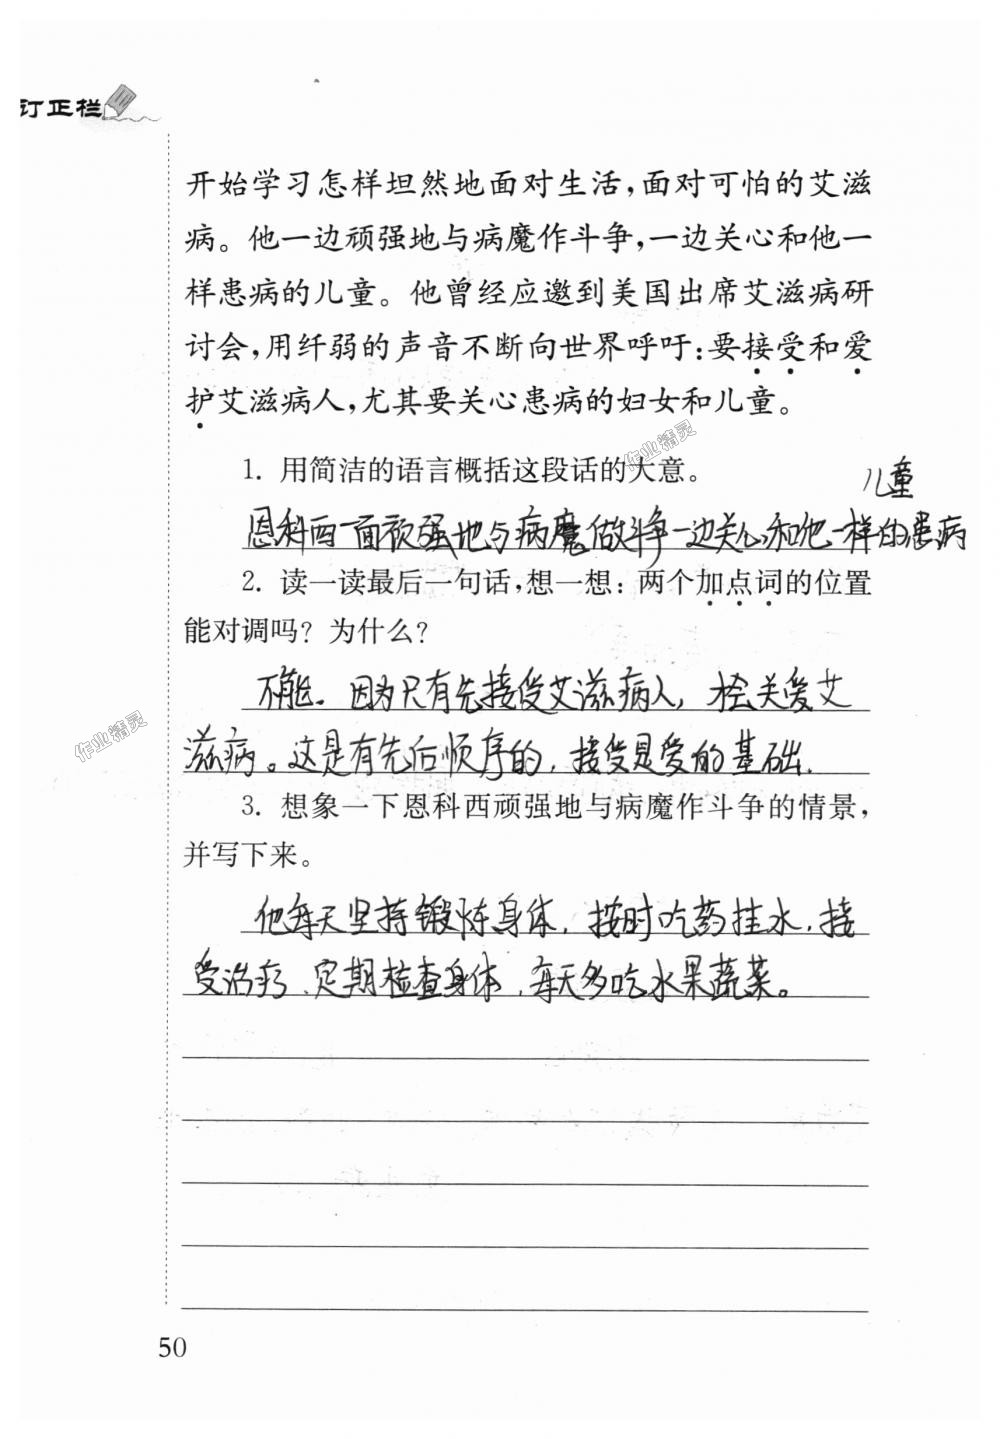 订正栏
开始学习怎样坦然地面对生活,面对可怕的艾滋
病。他一边顽强地与病魔作斗争,一边关心和他一
样患病的儿童。他曾经应邀到美国出席艾滋病研
讨会,用纤弱的声音不断向世界呼吁:要接受和爱
护艾滋病人,尤其要关心患病的妇女和儿童。
作业精灵
1. 用简洁的语言概括这段话的大意。
儿童
恩科西一面顽强地与病魔做斗争一边关心和他一样的患病
2. 读一读最后一句话,想一想:两个加点词的位置
能对调吗?为什么?
不能。因为只有先接受艾滋病人,才会关爱艾
作业精灵
滋病。这是有先后顺序的,接受是爱的基础.
3. 想象一下恩科西顽强地与病魔作斗争的情景,
并写下来。
他每天坚持锻炼身体,按时吃药挂水,接
受治疗、定期检查身体,每天多吃水果蔬菜。
50